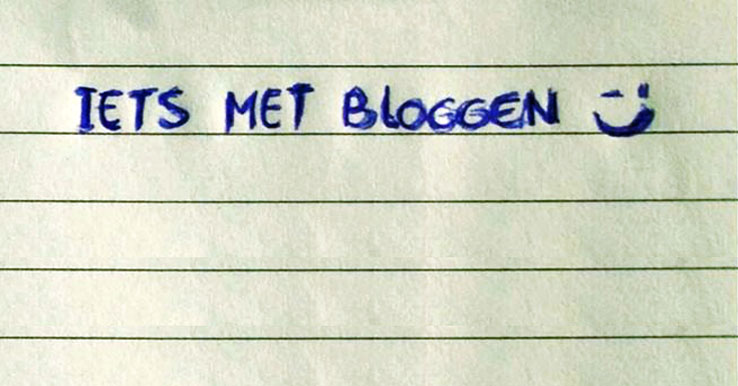 IETS MET BLOGGEN